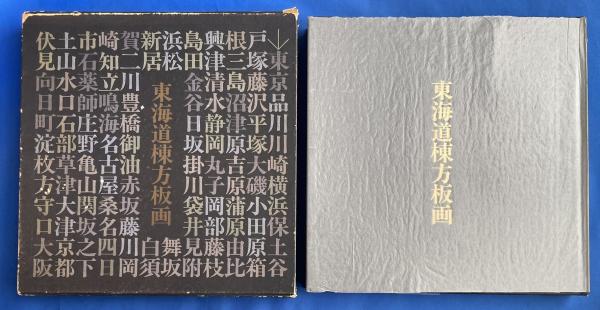 ↓東京品川川崎横浜保土谷
戸塚藤沢平塚大磯小田原箱
根三島沼津原吉原蒲原由比
興津清水静岡丸子岡部藤枝
島田金谷日坂掛川袋井見附
浜松 舞坂
新居 白須
東海道棟方板画
賀二川豊橋御油赤坂藤川岡
崎知立鳴海名古屋桑名四日
市石薬師庄野亀山関坂之下
土山水口石部草津大津京都
伏見向日町淀枚方守口大阪
東海道棟方板画